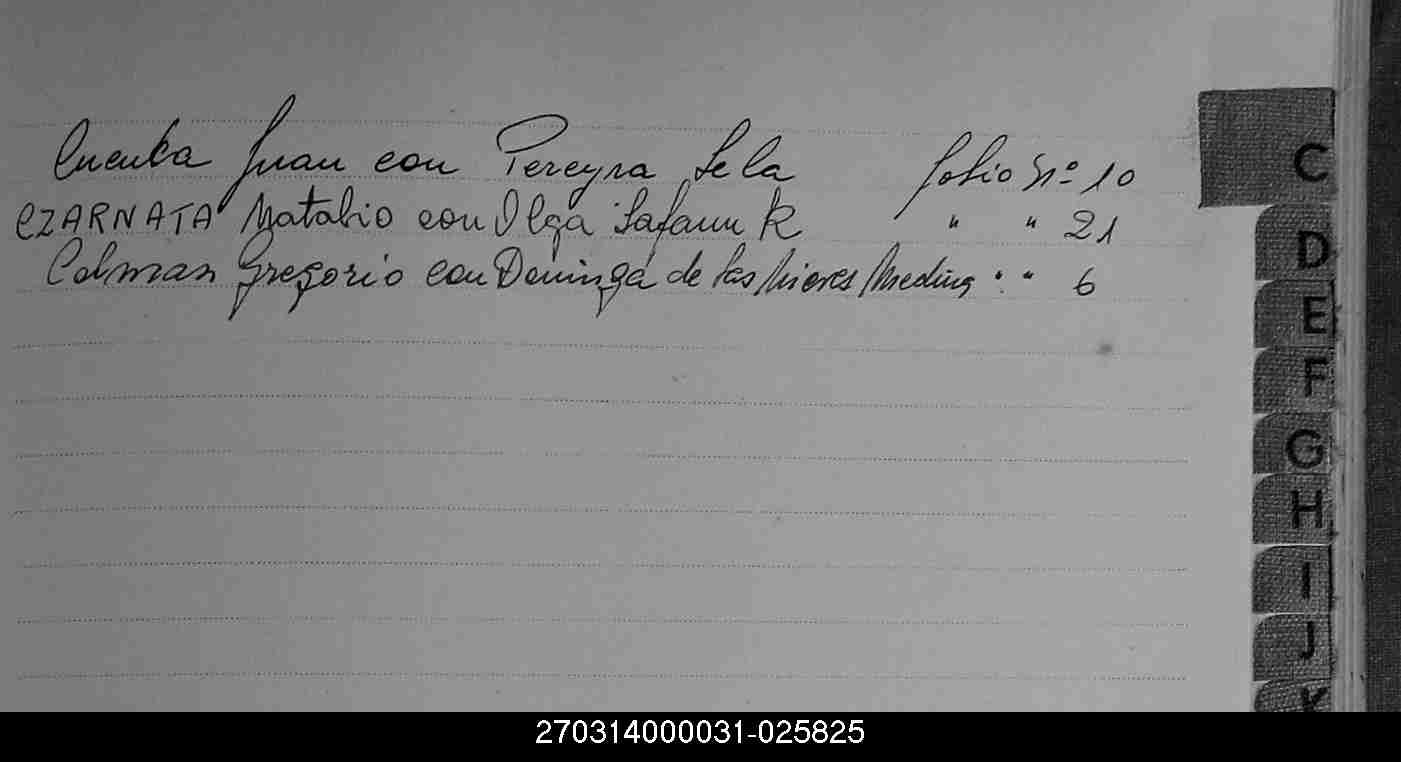 Cuenka Juan con Pereyra Lela folio Nº 10
CZARNATA Natalio con Olga Safanuk " " 21
Colman Gregorio con Dominga de las Nieves Medina " " 6
C
D
E
F
G
H
I
J
K
270314000031-025825